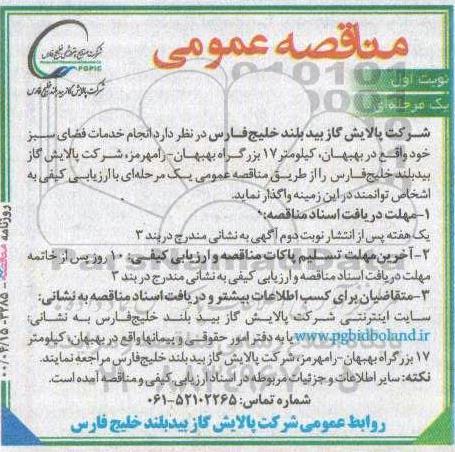 مناقصه عمومی
شرکت صنایع پتروشیمی خلیج فارس
PGPIC
شرکت پالایش گاز بیدبلند خلیج فارس
نوبت اول
یک مرحله‌ای
شرکت پالایش گاز بیدبلند خلیج‌فارس در نظر دارد انجام خدمات فضای سبز
خود واقع در بهبهان، کیلومتر ۱۷ بزرگراه بهبهان-رامهرمز، شرکت پالایش گاز
بیدبلند خلیج‌فارس را از طریق مناقصه عمومی یک مرحله‌ای با ارزیابی کیفی به
اشخاص توانمند در این زمینه واگذار نماید.
۱-مهلت دریافت اسناد مناقصه:
یک هفته پس از انتشار نوبت دوم آگهی به نشانی مندرج در بند ۳
۲-آخرین مهلت تسلیم پاکات مناقصه و ارزیابی کیفی: ۱۰ روز پس از خاتمه
مهلت دریافت اسناد مناقصه و ارزیابی کیفی به نشانی مندرج در بند ۳
۳-متقاضیان برای کسب اطلاعات بیشتر و دریافت اسناد مناقصه به نشانی:
سایت اینترنتی شرکت پالایش گاز بید بلند خلیج‌فارس به نشانی:
www.pgbidboland.ir یا به دفتر امور حقوقی و پیمانها واقع در بهبهان، کیلومتر
۱۷ بزرگراه بهبهان-رامهرمز، شرکت پالایش گاز بید بلند خلیج‌فارس مراجعه نمایند.
نکته: سایر اطلاعات و جزئیات مربوطه در اسناد ارزیابی کیفی و مناقصه آمده است.
شماره تماس: ۵۲۱۰۲۲۶۵-۰۶۱
روابط عمومی شرکت پالایش گاز بیدبلند خلیج فارس
روزنامه مناقصه ۳۲۸۵ - ۰۰/۰۴/۱۵